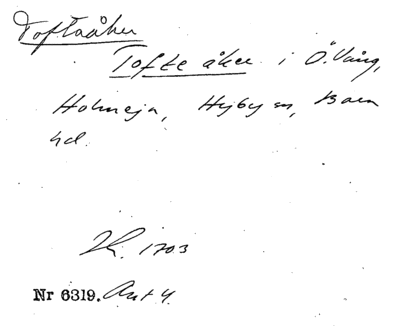 Toftaåker
Tofte åker i Ö. Vång,
Holmeja, Hyby sn, Bara
hd.
Lk. 1703
Nr 6319. Akt 4.